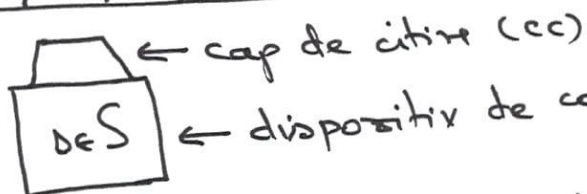 ← cap de citire (CC)
DES ← dispozitiv de